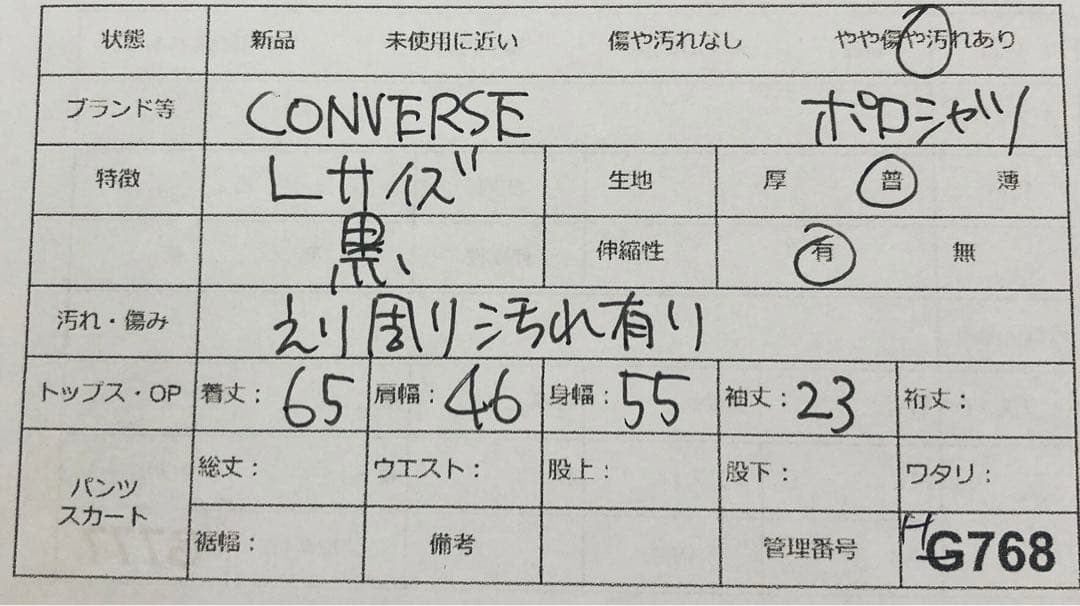 状態 新品 未使用に近い 傷や汚れなし やや傷や汚れあり
ブランド等 CONVERSE ポロシャツ
特徴 Lサイズ 生地 厚 普 薄
黒、 伸縮性 有 無
汚れ・傷み えり周り汚れ有り
トップス・OP 着丈：65 肩幅：46 身幅：55 袖丈：23 裄丈：
パンツ
スカート
総丈： ウエスト： 股上： 股下： ワタリ：
裾幅： 備考 管理番号 HG768